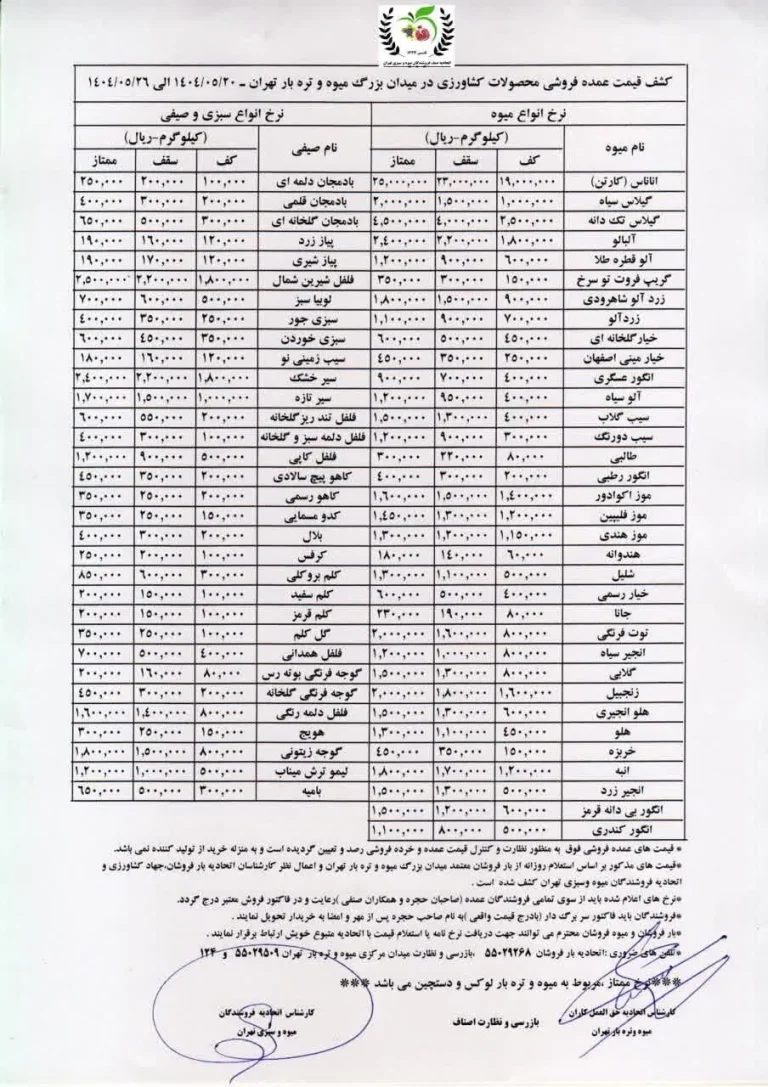 تاسیس ۱۳۳۴
اتحادیه صنف فروشندگان میوه و سبزی تهران
کشف قیمت عمده فروشی محصولات کشاورزی در میدان بزرگ میوه و تره بار تهران ــ ۱۴۰۴/۰۵/۲۰ الی ۱۴۰۴/۰۵/۲۶
نرخ انواع میوه نرخ انواع سبزی و صیفی
نام میوه (کیلوگرم-ریال) نام صیفی (کیلوگرم-ریال)
کف سقف ممتاز کف سقف ممتاز
اناناس (کارتن) ۱۹,۰۰۰,۰۰۰ ۲۳,۰۰۰,۰۰۰ ۲۵,۰۰۰,۰۰۰ بادمجان دلمه ای ۱۰۰,۰۰۰ ۲۰۰,۰۰۰ ۲۵۰,۰۰۰
گیلاس سیاه ۱,۰۰۰,۰۰۰ ۱,۵۰۰,۰۰۰ ۲,۰۰۰,۰۰۰ بادمجان قلمی ۲۰۰,۰۰۰ ۳۰۰,۰۰۰ ۴۰۰,۰۰۰
گیلاس تک دانه ۲,۵۰۰,۰۰۰ ۴,۰۰۰,۰۰۰ ۴,۵۰۰,۰۰۰ بادمجان گلخانه ای ۳۰۰,۰۰۰ ۵۰۰,۰۰۰ ۶۵۰,۰۰۰
آلبالو ۱,۸۰۰,۰۰۰ ۲,۲۰۰,۰۰۰ ۲,۴۰۰,۰۰۰ پیاز زرد ۱۲۰,۰۰۰ ۱۶۰,۰۰۰ ۱۹۰,۰۰۰
آلو قطره طلا ۶۰۰,۰۰۰ ۹۰۰,۰۰۰ ۱,۲۰۰,۰۰۰ پیاز شیری ۱۲۰,۰۰۰ ۱۷۰,۰۰۰ ۱۹۰,۰۰۰
گریپ فروت تو سرخ ۱۵۰,۰۰۰ ۳۰۰,۰۰۰ ۳۵۰,۰۰۰ فلفل شیرین شمال ۱,۸۰۰,۰۰۰ ۲,۲۰۰,۰۰۰ ۲,۵۰۰,۰۰۰
زرد آلو شاهرودی ۹۰۰,۰۰۰ ۱,۵۰۰,۰۰۰ ۱,۸۰۰,۰۰۰ لوبیا سبز ۵۰۰,۰۰۰ ۶۰۰,۰۰۰ ۷۰۰,۰۰۰
زردآلو ۷۰۰,۰۰۰ ۹۰۰,۰۰۰ ۱,۱۰۰,۰۰۰ سبزی جور ۲۵۰,۰۰۰ ۳۵۰,۰۰۰ ۴۰۰,۰۰۰
خیارگلخانه ای ۴۵۰,۰۰۰ ۵۰۰,۰۰۰ ۶۰۰,۰۰۰ سبزی خوردن ۳۵۰,۰۰۰ ۴۵۰,۰۰۰ ۶۰۰,۰۰۰
خیار مینی اصفهان ۲۵۰,۰۰۰ ۳۵۰,۰۰۰ ۴۵۰,۰۰۰ سیب زمینی نو ۱۲۰,۰۰۰ ۱۶۰,۰۰۰ ۱۸۰,۰۰۰
انگور عسگری ۴۰۰,۰۰۰ ۷۰۰,۰۰۰ ۹۰۰,۰۰۰ سیر خشک ۱,۸۰۰,۰۰۰ ۲,۲۰۰,۰۰۰ ۲,۴۰۰,۰۰۰
آلو سیاه ۴۰۰,۰۰۰ ۹۵۰,۰۰۰ ۱,۲۰۰,۰۰۰ سیر تازه ۱,۰۰۰,۰۰۰ ۱,۵۰۰,۰۰۰ ۱,۷۰۰,۰۰۰
سیب گلاب ۴۰۰,۰۰۰ ۱,۳۰۰,۰۰۰ ۱,۵۰۰,۰۰۰ فلفل تند ریزگلخانه ۲۰۰,۰۰۰ ۵۵۰,۰۰۰ ۶۰۰,۰۰۰
سیب دورنگ ۳۰۰,۰۰۰ ۹۰۰,۰۰۰ ۱,۲۰۰,۰۰۰ فلفل دلمه سبز و گلخانه ۱۰۰,۰۰۰ ۳۰۰,۰۰۰ ۴۰۰,۰۰۰
طالبی ۸۰,۰۰۰ ۲۲۰,۰۰۰ ۳۰۰,۰۰۰ فلفل کاپی ۵۰۰,۰۰۰ ۹۰۰,۰۰۰ ۱,۲۰۰,۰۰۰
انگور رطبی ۲۰۰,۰۰۰ ۳۰۰,۰۰۰ ۴۰۰,۰۰۰ کاهو پیچ سالادی ۲۰۰,۰۰۰ ۳۵۰,۰۰۰ ۴۵۰,۰۰۰
موز اکوادور ۱,۴۰۰,۰۰۰ ۱,۵۰۰,۰۰۰ ۱,۶۰۰,۰۰۰ کاهو رسمی ۲۰۰,۰۰۰ ۲۵۰,۰۰۰ ۳۵۰,۰۰۰
موز فلیپین ۱,۲۰۰,۰۰۰ ۱,۳۰۰,۰۰۰ ۱,۴۵۰,۰۰۰ کدو مسمایی ۱۵۰,۰۰۰ ۲۵۰,۰۰۰ ۳۵۰,۰۰۰
موز هندی ۱,۱۵۰,۰۰۰ ۱,۲۰۰,۰۰۰ ۱,۳۰۰,۰۰۰ بلال ۲۰۰,۰۰۰ ۳۰۰,۰۰۰ ۴۰۰,۰۰۰
هندوانه ۶۰,۰۰۰ ۱۴۰,۰۰۰ ۱۸۰,۰۰۰ کرفس ۱۰۰,۰۰۰ ۲۰۰,۰۰۰ ۲۵۰,۰۰۰
شلیل ۵۰۰,۰۰۰ ۱,۱۰۰,۰۰۰ ۱,۳۰۰,۰۰۰ کلم بروکلی ۳۰۰,۰۰۰ ۶۰۰,۰۰۰ ۸۵۰,۰۰۰
خیار رسمی ۴۰۰,۰۰۰ ۵۰۰,۰۰۰ ۶۰۰,۰۰۰ کلم سفید ۱۰۰,۰۰۰ ۱۵۰,۰۰۰ ۲۰۰,۰۰۰
جانا ۸۰,۰۰۰ ۱۹۰,۰۰۰ ۲۳۰,۰۰۰ کلم قرمز ۱۰۰,۰۰۰ ۱۵۰,۰۰۰ ۲۰۰,۰۰۰
توت فرنگی ۸۰۰,۰۰۰ ۱,۶۰۰,۰۰۰ ۲,۰۰۰,۰۰۰ گل کلم ۱۰۰,۰۰۰ ۲۵۰,۰۰۰ ۳۵۰,۰۰۰
انجیر سیاه ۸۰۰,۰۰۰ ۱,۰۰۰,۰۰۰ ۱,۲۰۰,۰۰۰ فلفل همدانی ۴۰۰,۰۰۰ ۵۰۰,۰۰۰ ۷۰۰,۰۰۰
گلابی ۸۰۰,۰۰۰ ۱,۳۰۰,۰۰۰ ۱,۵۰۰,۰۰۰ گوجه فرنگی بوته رس ۸۰,۰۰۰ ۱۶۰,۰۰۰ ۲۰۰,۰۰۰
زنجبیل ۱,۶۰۰,۰۰۰ ۱,۸۰۰,۰۰۰ ۲,۰۰۰,۰۰۰ گوجه فرنگی گلخانه ۲۰۰,۰۰۰ ۳۰۰,۰۰۰ ۴۵۰,۰۰۰
هلو انجیری ۶۰۰,۰۰۰ ۱,۳۰۰,۰۰۰ ۱,۵۰۰,۰۰۰ فلفل دلمه رنگی ۸۰۰,۰۰۰ ۱,۴۰۰,۰۰۰ ۱,۶۰۰,۰۰۰
هلو ۴۵۰,۰۰۰ ۱,۱۰۰,۰۰۰ ۱,۳۰۰,۰۰۰ هویج ۱۵۰,۰۰۰ ۲۵۰,۰۰۰ ۳۰۰,۰۰۰
خربزه ۱۵۰,۰۰۰ ۳۵۰,۰۰۰ ۴۵۰,۰۰۰ گوجه زیتونی ۸۰۰,۰۰۰ ۱,۵۰۰,۰۰۰ ۱,۸۰۰,۰۰۰
انبه ۱,۲۰۰,۰۰۰ ۱,۷۰۰,۰۰۰ ۱,۸۰۰,۰۰۰ لیمو ترش میناب ۵۰۰,۰۰۰ ۱,۰۰۰,۰۰۰ ۱,۲۰۰,۰۰۰
انجیر زرد ۵۰۰,۰۰۰ ۱,۳۰۰,۰۰۰ ۱,۵۰۰,۰۰۰ بامیه ۳۰۰,۰۰۰ ۵۰۰,۰۰۰ ۶۵۰,۰۰۰
انگور بی دانه قرمز ۶۰۰,۰۰۰ ۱,۲۰۰,۰۰۰ ۱,۵۰۰,۰۰۰
انگور کندری ۵۰۰,۰۰۰ ۸۰۰,۰۰۰ ۱,۱۰۰,۰۰۰
* قیمت های عمده فروشی فوق به منظور نظارت و کنترل قیمت عمده و خرده فروشی رصد و تعیین گردیده است و به منزله خرید از تولید کننده نمی باشد.
*قیمت های مذکور بر اساس استعلام روزانه از بار فروشان معتمد میدان بزرگ میوه و تره بار تهران و اعمال نظر کارشناسان اتحادیه بار فروشان،جهاد کشاورزی و
اتحادیه فروشندگان میوه وسبزی تهران کشف شده است .
*نرخ های اعلام شده باید از سوی تمامی فروشندگان عمده (صاحبان حجره و همکاران صنفی )رعایت و در فاکتور فروش معتبر درج گردد.
*فروشندگان باید فاکتور سر برگ دار (بادرج قیمت واقعی )به نام صاحب حجره پس از مهر و امضا به خریدار تحویل نمایند .
*بار فروشان و میوه فروشان محترم می توانند جهت دریافت نرخ نامه یا استعلام قیمت با اتحادیه متبوع خویش ارتباط برقرار نمایند .
*تلفن های ضروری :اتحادیه بار فروشان ۵۵۰۲۹۲۶۸ ،بازرسی و نظارت میدان مرکزی میوه و تره بار تهران ۵۵۰۲۹۵۰۹ و ۱۲۴
***نرخ ممتاز ،مربوط به میوه و تره بار لوکس و دستچین می باشد ***
کارشناس اتحادیه حق العمل کاران بازرسی و نظارت اصناف کارشناس اتحادیه فروشندگان
میوه وتره بار تهران میوه و سبزی تهران